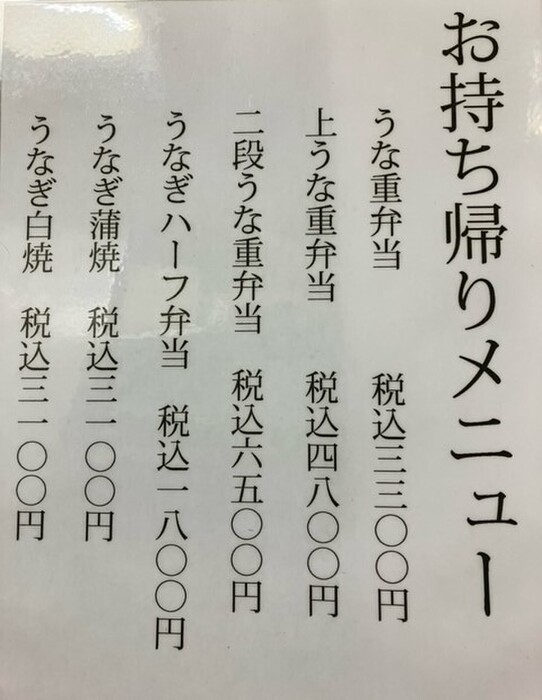 お持ち帰りメニュー
うな重弁当 税込三三〇〇円
上うな重弁当 税込四八〇〇円
二段うな重弁当 税込六五〇〇円
うなぎハーフ弁当 税込一八〇〇円
うなぎ蒲焼 税込三一〇〇円
うなぎ白焼 税込三一〇〇円